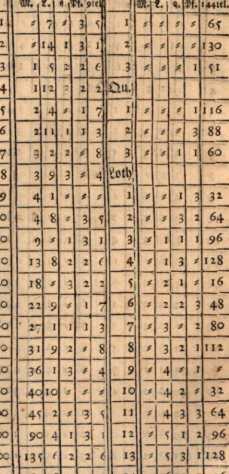 M. L. q. Pf. 9tel M. L. q. Pf. 
1 ⸗ 7 ⸗ 3 5 1 ⸗ ⸗ ⸗ ⸗ 65
2 ⸗ 14 1 3 1 2 ⸗ ⸗ ⸗ ⸗ 130
3 1 5 2 2 6 3 ⸗ ⸗ ⸗ 1 51
4 1 12 2 2 2 Qu.
5 2 4 ⸗ 1 7 1 ⸗ ⸗ ⸗ 1 116
6 2 11 1 1 3 2 ⸗ ⸗ ⸗ 3 88
7 3 2 2 ⸗ 8 3 ⸗ ⸗ 1 1 60
8 3 9 3 ⸗ 4 Loth
9 4 1 ⸗ ⸗ ⸗ 1 ⸗ ⸗ 1 3 32
0 4 8 ⸗ 3 5 2 ⸗ ⸗ 3 2 64
0 9 ⸗ 1 3 1 3 ⸗ 1 1 1 96
0 13 8 2 2 6 4 ⸗ 1 3 ⸗ 128
0 18 ⸗ 3 2 2 5 ⸗ 2 1 ⸗ 16
0 22 9 ⸗ 1 7 6 ⸗ 2 2 3 48
0 27 1 1 1 3 7 ⸗ 3 ⸗ 2 80
0 31 9 2 ⸗ 8 8 ⸗ 3 2 1 112
0 36 1 3 ⸗ 4 9 ⸗ 4 ⸗ 1 ⸗
0 40 10 ⸗ ⸗ ⸗ 10 ⸗ 4 2 ⸗ 32
0 45 2 ⸗ 3 5 11 ⸗ 4 3 3 64
0 90 4 1 3 1 12 ⸗ 5 1 2 96
0 135 6 2 2 6 13 ⸗ 5 3 1 128